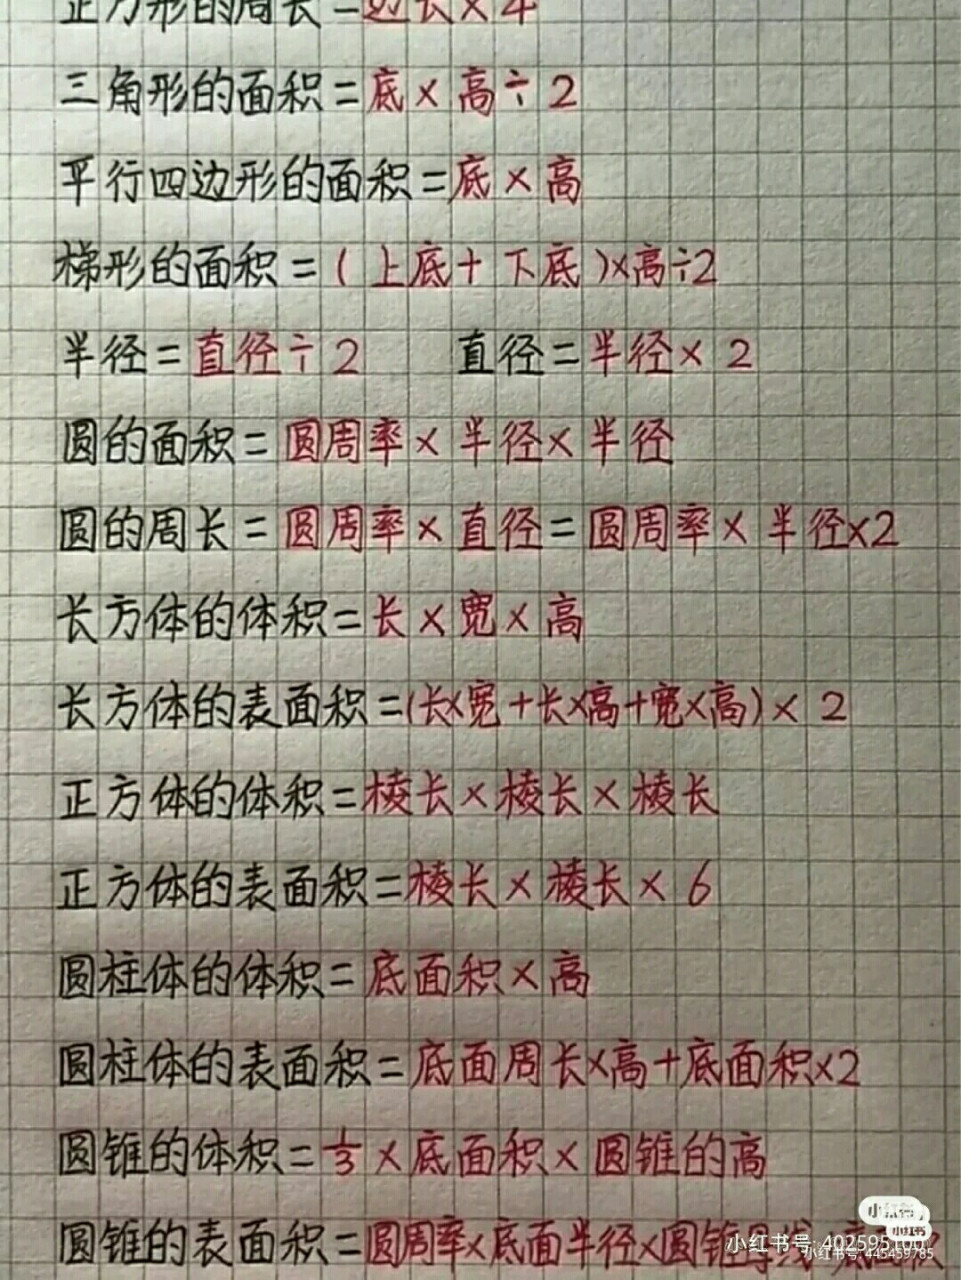 正方形的周长=边长×4
三角形的面积=底×高÷2
平行四边形的面积=底×高
梯形的面积=(上底+下底)×高÷2
半径=直径÷2 直径=半径×2
圆的面积=圆周率×半径×半径
圆的周长=圆周率×直径=圆周率×半径×2
长方体的体积=长×宽×高
长方体的表面积=(长×宽+长×高+宽×高)×2
正方体的体积=棱长×棱长×棱长
正方体的表面积=棱长×棱长×6
圆柱体的体积=底面积×高
圆柱体的表面积=底面周长×高+底面积×2
圆锥的体积=1/3×底面积×圆锥的高
圆锥的表面积=圆周率×底面半径×圆锥母线
小红书
小红书号:
小红书号:445459785